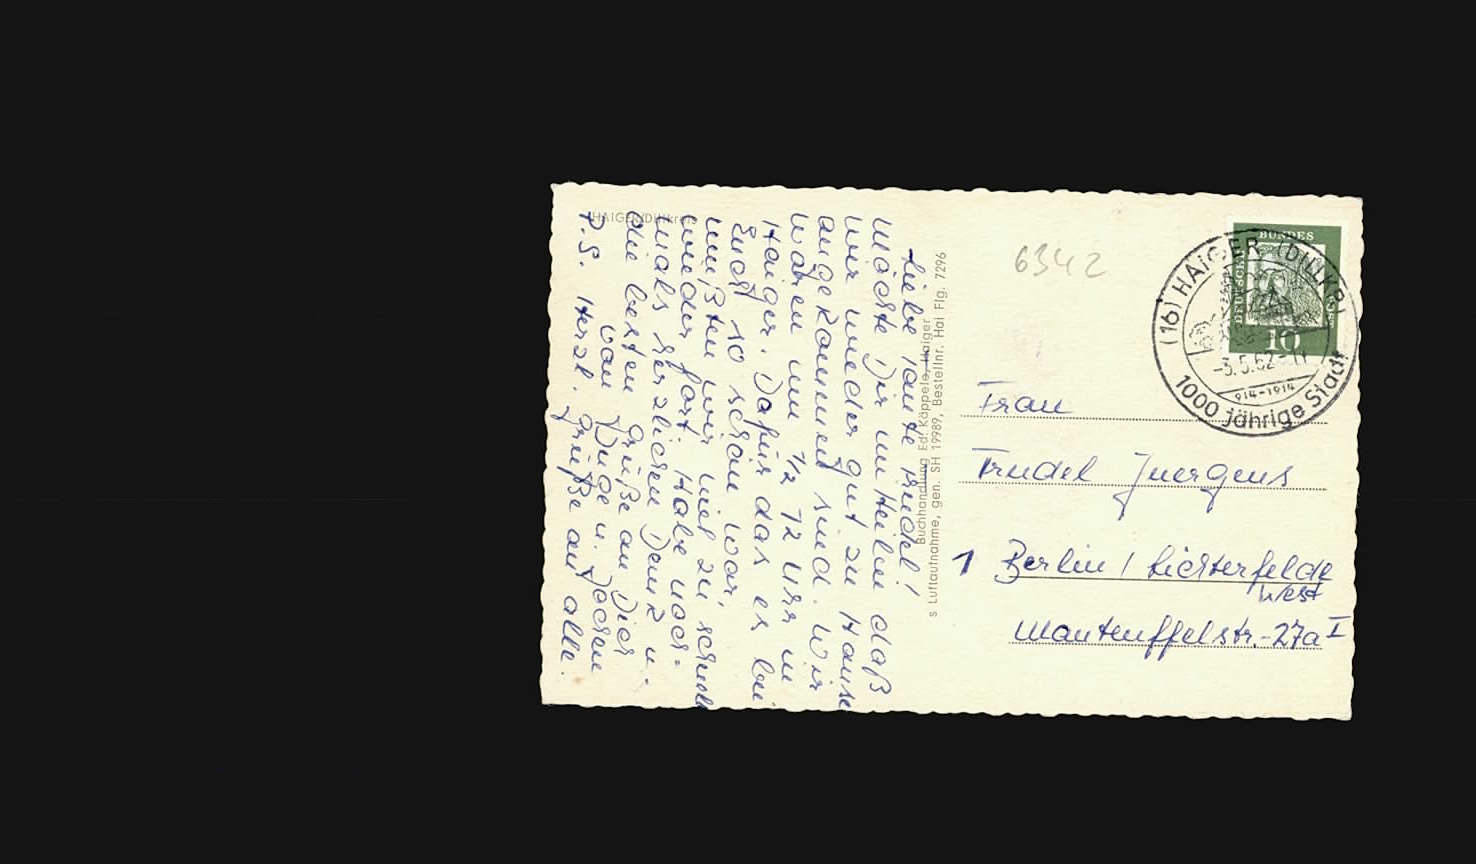 HAIGER/Dillkreis
Liebe Tante Trudel!
Möchte Dir mitteilen daß
wir wieder gut zu Hause
angekommen sind. Wir
waren um 1/2 12 Uhr in
Haiger. Dafür das es bei
Euch so schön war,
mußten wir viel zu schnell
wieder fort. Habe noch-
mals herzlichen Dank u.
die besten Grüße an Dich
von Inge u. Jochen
P.S. Herzl. Grüße an alle.
Buchhandlung Ed. Käppele, Haiger
s Luftaufnahme, gen. SH 19989, Bestellnr. Hai Flg. 7296
6342
DEUTSCHE BUNDES
10
(16) HAIGER (DILLKR)
-3.5.62
914-1914
1000 jährige Stadt
Frau
Trudel Juergens
1 Berlin / Lichterfelde
West
Manteuffelstr.-27a I